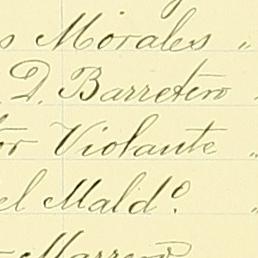 s Morales "
D. Barretero
or Violante "
el Mald.º "
Marrero